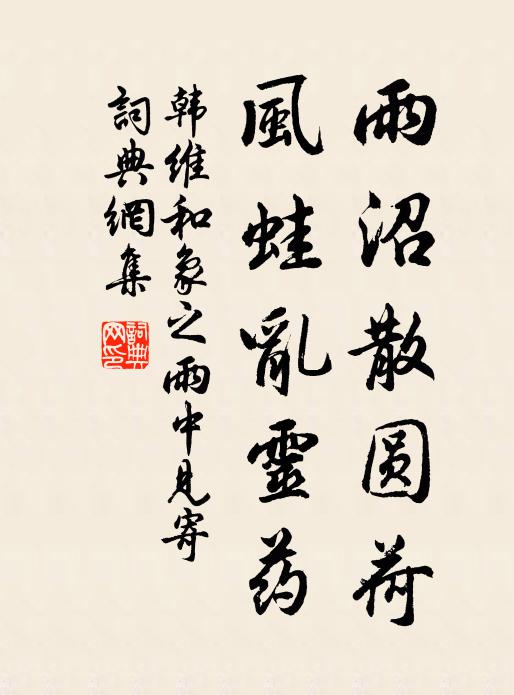 雨沼散圆荷
風蛙亂靈药
韩维和象之雨中見寄
詞典網集
詞典網印